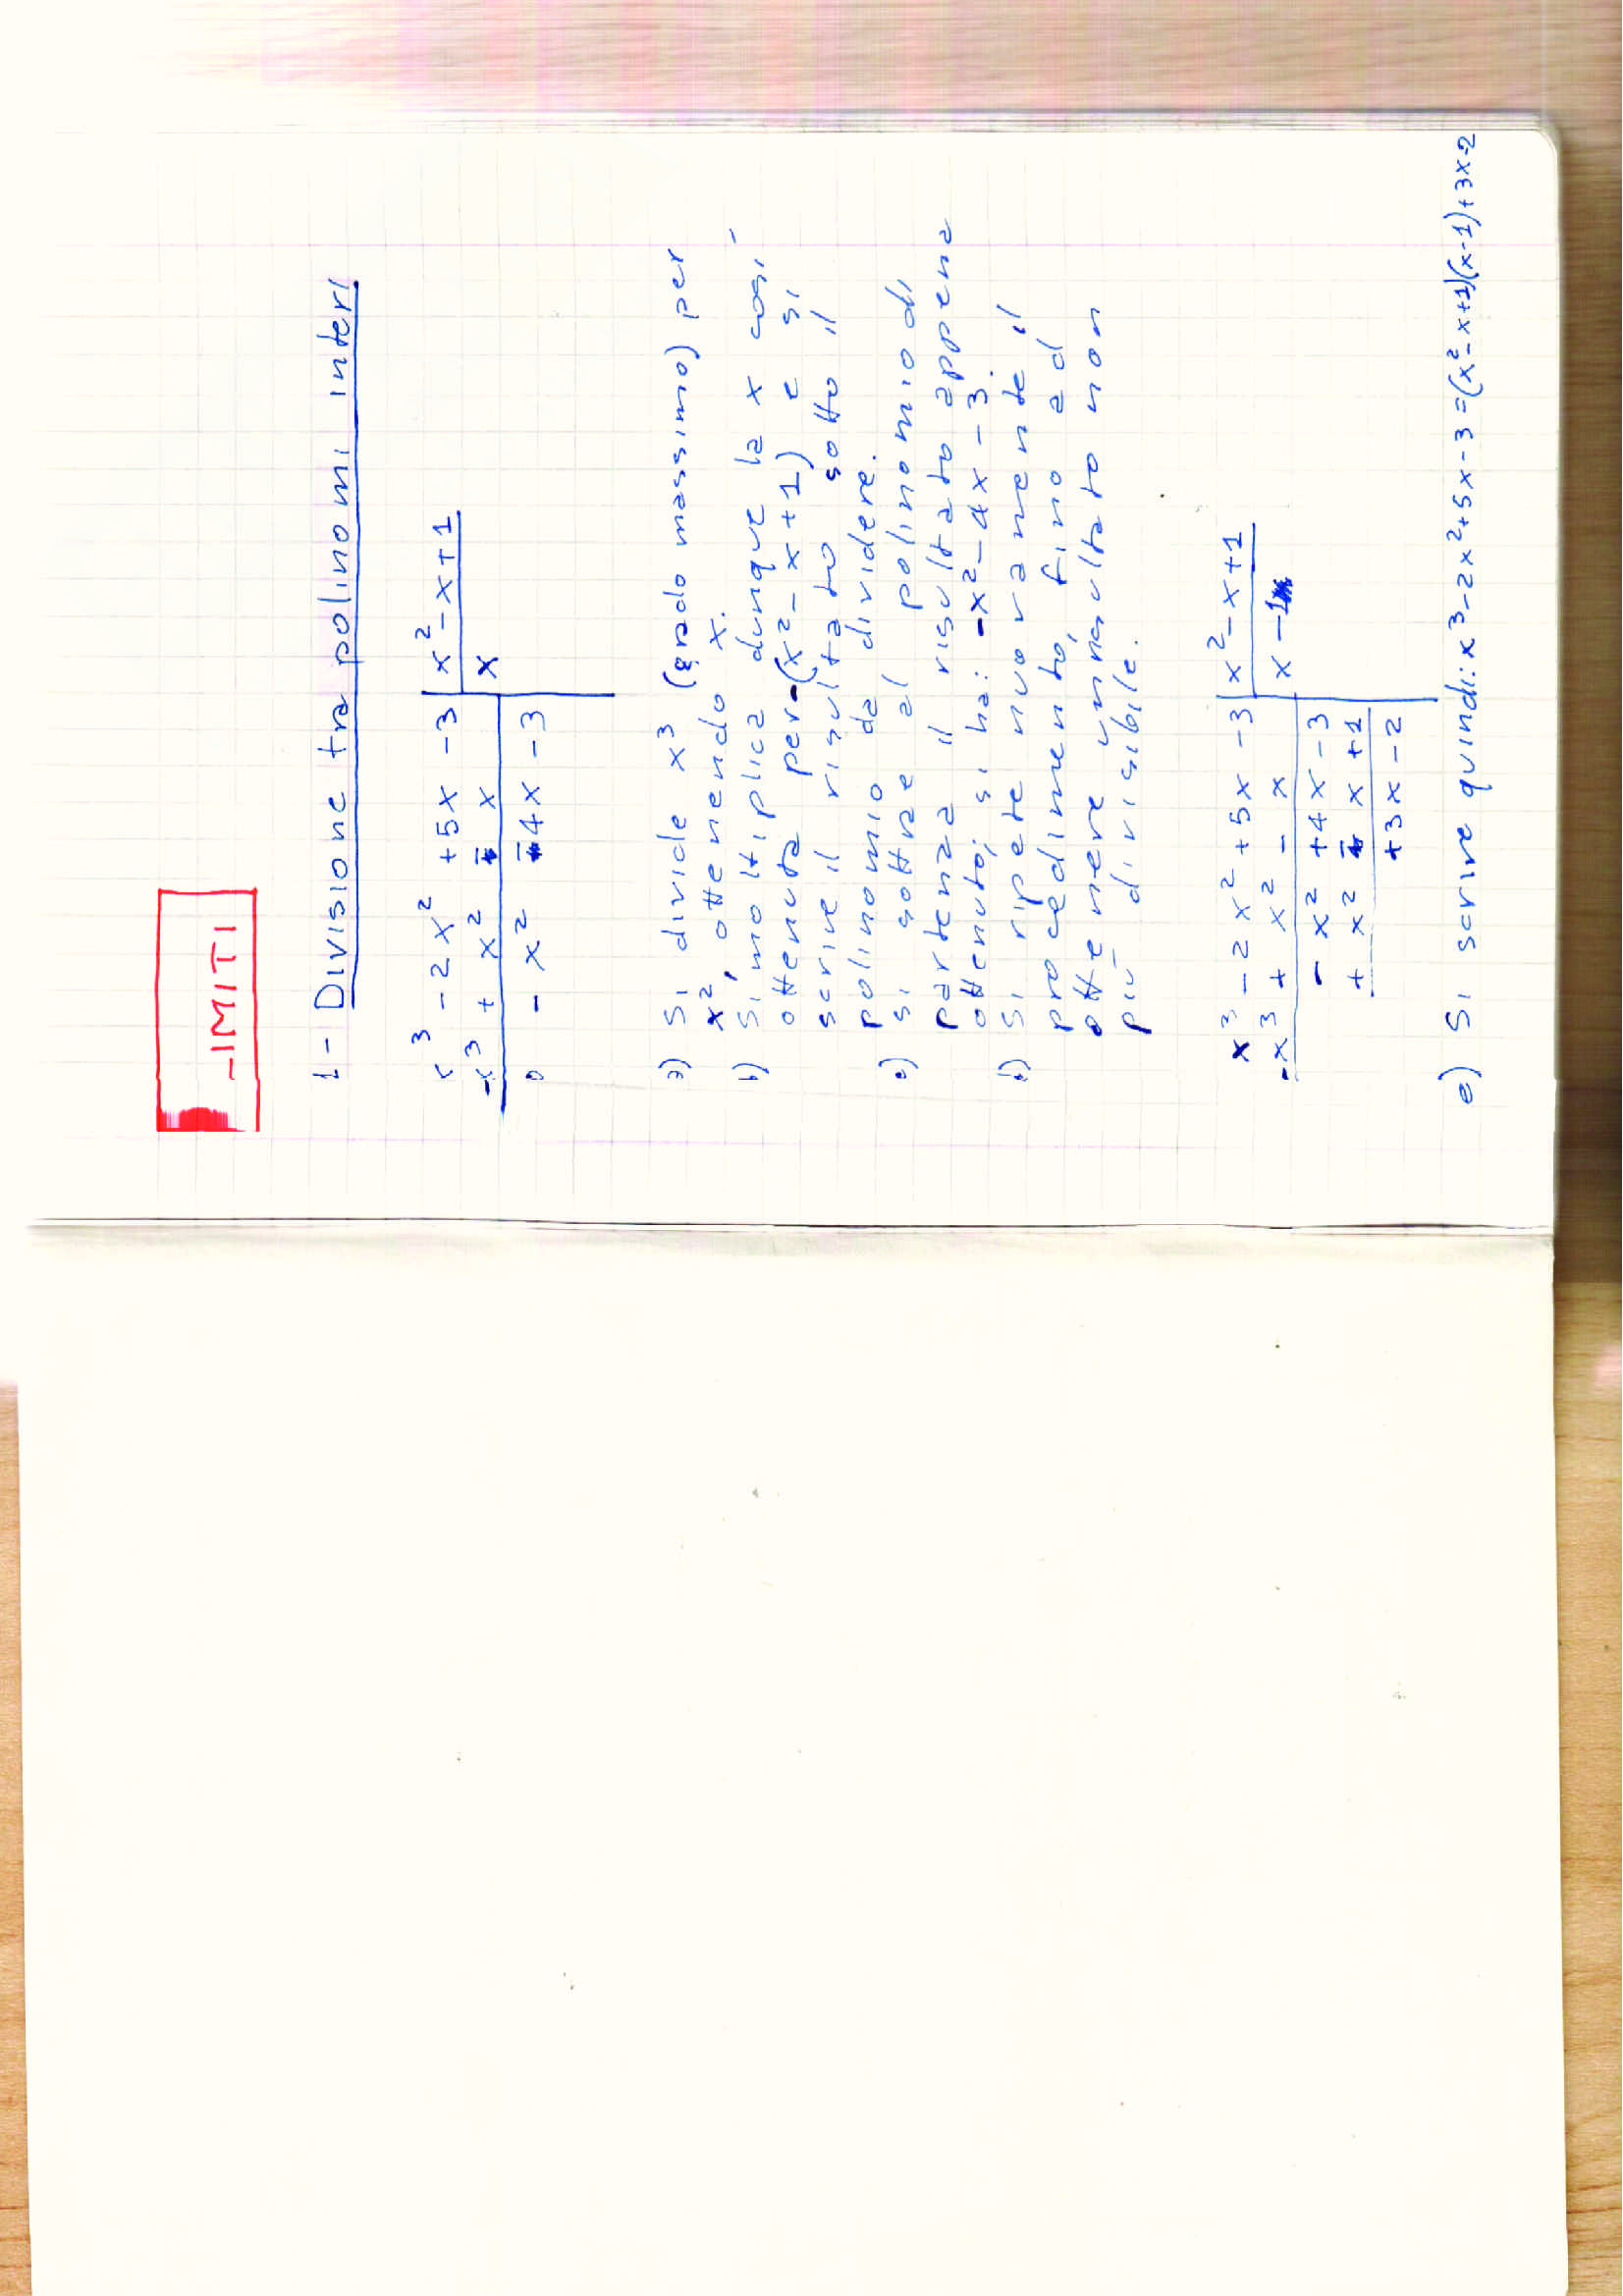 -IMITI
1- Divisione tra polinomi interi
x³ -2x² +5x -3 | x²-x+1
-x³ + x² - x | x
0 - x² -4x -3
a) Si divide x³ (grado massimo) per
x², ottenendo x.
b) Si moltiplica dunque la x così
ottenuta per -(x²-x+1) e si
scrive il risultato sotto il
polinomio da dividere.
c) Si sottrae al polinomio di
partenza il risultato appena
ottenuto; si ha: -x²-4x-3.
d) Si ripete nuovamente il
procedimento, fino ad
ottenere un risultato non
più divisibile.
x³ -2x² +5x -3 | x²-x+1
-x³ + x² - x | x -1
- x² +4x -3
+ x² - x +1
+3x -2
e) Si scrive quindi: x³-2x²+5x-3=(x²-x+1)(x-1)+3x-2